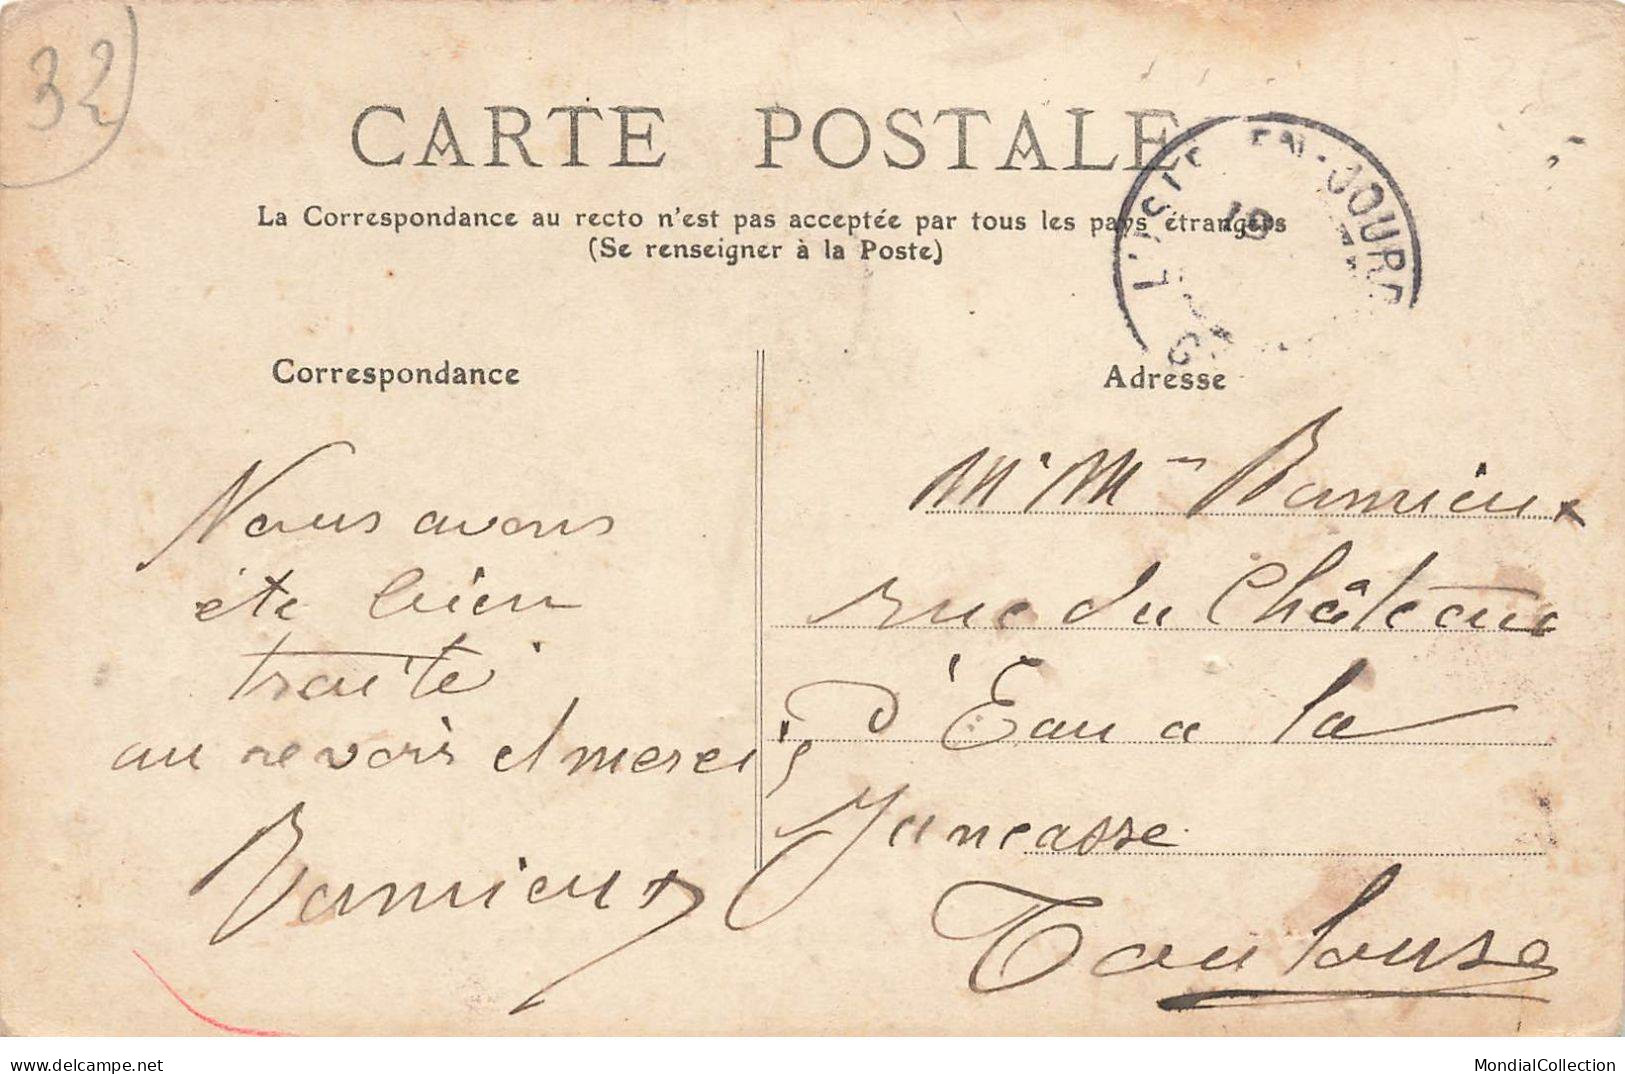 32
CARTE POSTALE
La Correspondance au recto n'est pas acceptée par tous les pays étrangers
(Se renseigner à la Poste)
L'ISLE-EN-JOURD
19
G
Correspondance
Adresse
Nous avons
ete bien
traité
au revoir et merci
Mr Mme
rue du Château
d'Eau a la
Toulouse
www.delcampe.net
MondialCollection